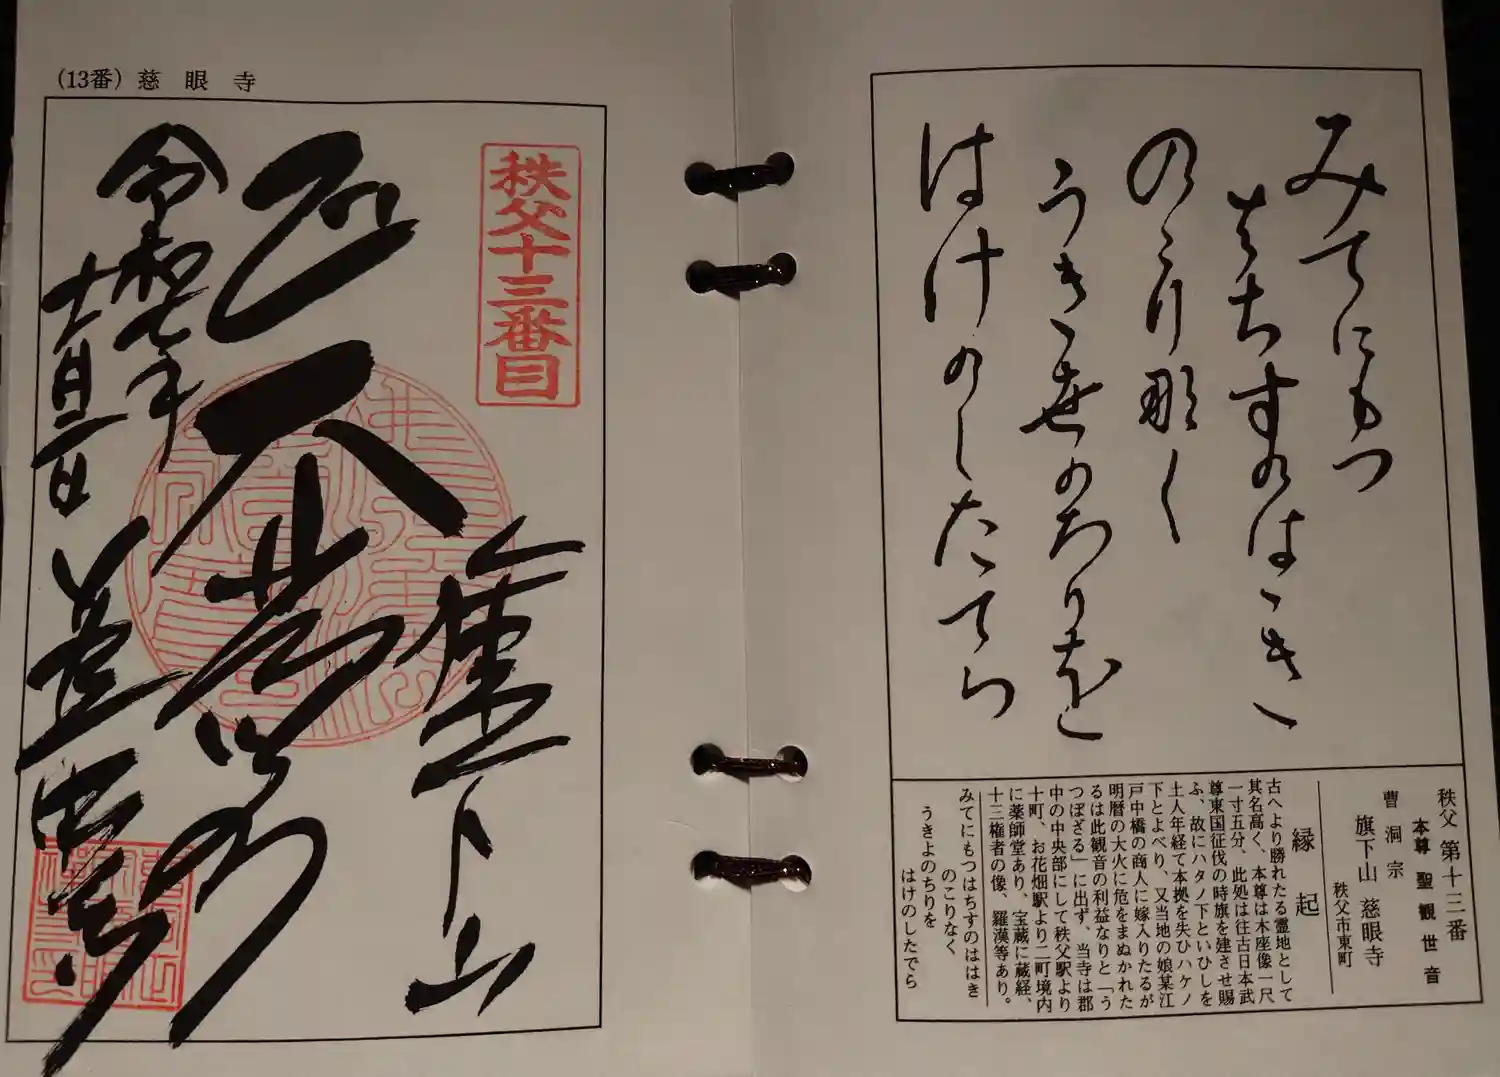 みてにもつ
はちすのはゝき
のこり那く
うきよのちりを
はけのしたてら
秩父第十三番
本尊 聖観世音
曹洞宗
旗下山 慈眼寺
秩父市東町
縁起
古へより勝れたる霊地として
其名高く、本尊は木座像一尺
一寸五分、此処は往古日本武
尊東国征伐の時旗を建させ賜
ふ、故にハタノ下といひしを
土人年経て本拠を失ひハケノ
下とよべり、又当地の娘某江
戸中橋の商人に嫁入りたるが
明暦の大火に危をまぬかれた
るは此観音の利益なりと「う
つぼざる」に出ず、当寺は郡
中の中央部にして秩父駅より
十町、お花畑駅より二町境内
に薬師堂あり、宝蔵に蔵経、
十三権者の像、羅漢等あり。
みてにもつはちすのははき
のこりなく
うきよのちりを
はけのしたでら
(13番) 慈眼寺
秩父十三番目
旗下山
令和七年
十一月二日
慈眼寺